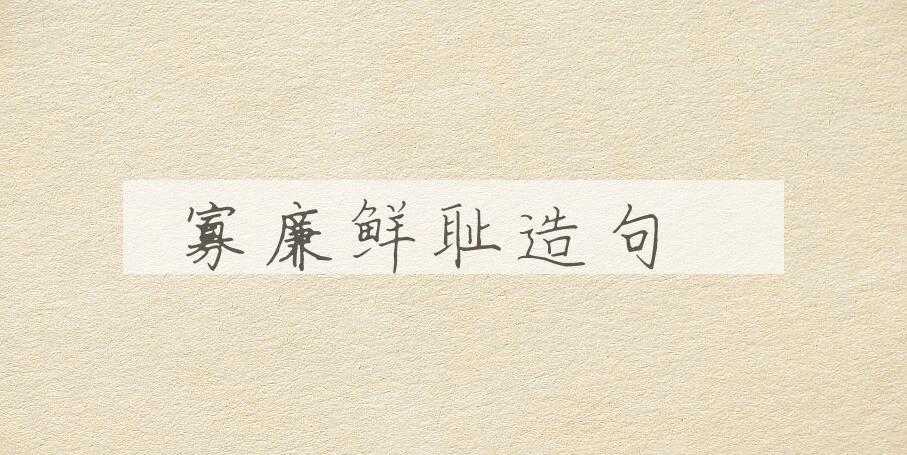 寡廉鲜耻造句